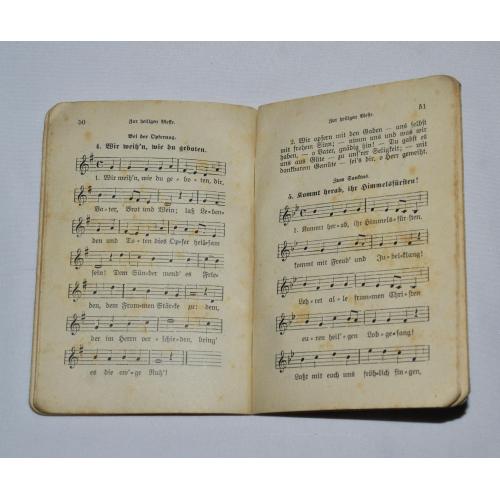 50
Zur heiligen Messe.
Bei der Opferung.
4. Wir weih'n, wie du geboten.
1. Wir weih'n, wie du ge-bo-ten, dir,
Va-ter, Brot und Wein; laß Leben-
den und To-ten dies Op-fer heilsam
sein! Dem Sün-der wend' es Frie-
den, dem Frommen Stär-ke zu; dem,
der im Herrn ver-schie-den, bring'
es die ew'ge Ruh'!
51
Zur heiligen Messe.
2. Wir opfern mit den Gaben — uns selbst
mit frohem Sinn; — nimm uns und was wir
haben, — o Vater, gnädig hin! — Du gabst es
uns aus Güte — zu uns'rer Seligkeit; — mit
dankbarem Gemüte — sei's dir, o Herr geweiht.
Zum Sanktus.
5. Kommt herab, ihr Himmelsfürsten!
1. Kommt her-ab, ihr Himmelsfür-sten,
kommt mit Freud' und Ju-bel-klang!
Leh-ret al-le frommen Chri-sten
eu-ren heil'-gen Lob-ge-sang!
Laßt mit euch uns fröh-lich sin-gen,